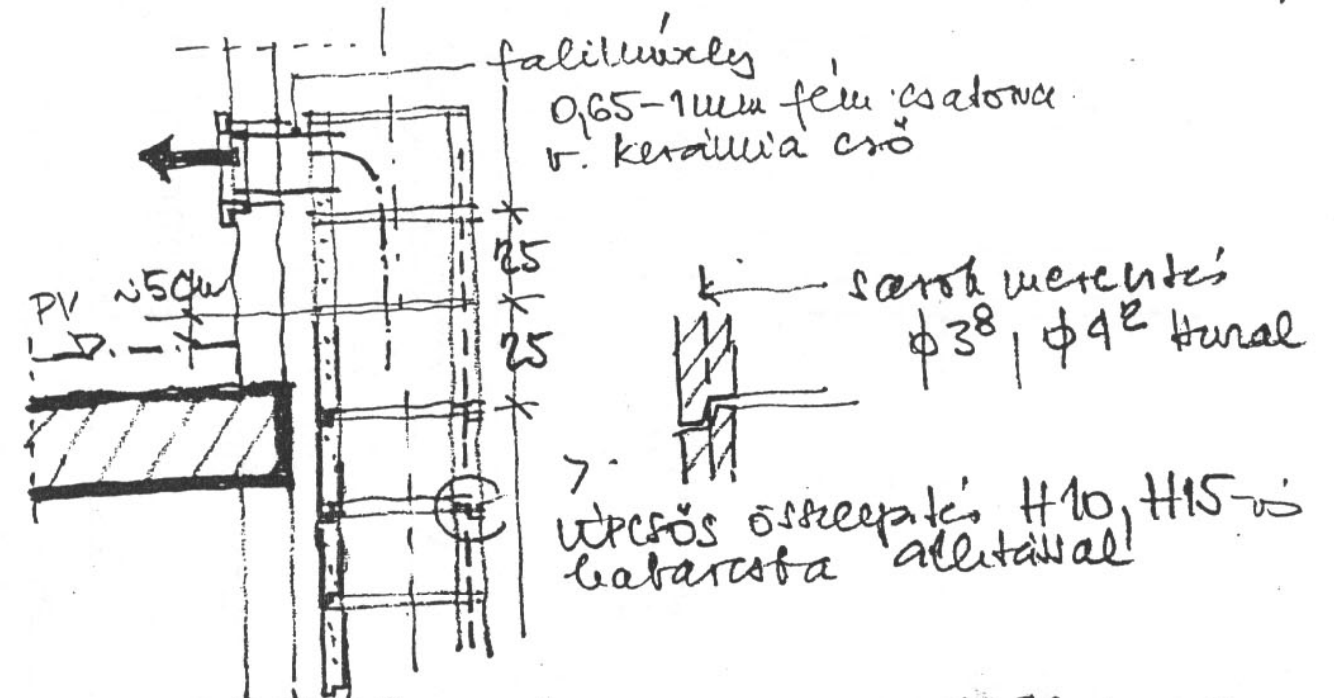 falihüvely
0,65-1mm fém csatorna
v. kerámia cső
25
25
PV ~5cm
sarok merevítés
ϕ3⁸, ϕ4² huzal
lépcsős összeépítés H10, H15-ös
habarcsba állítással